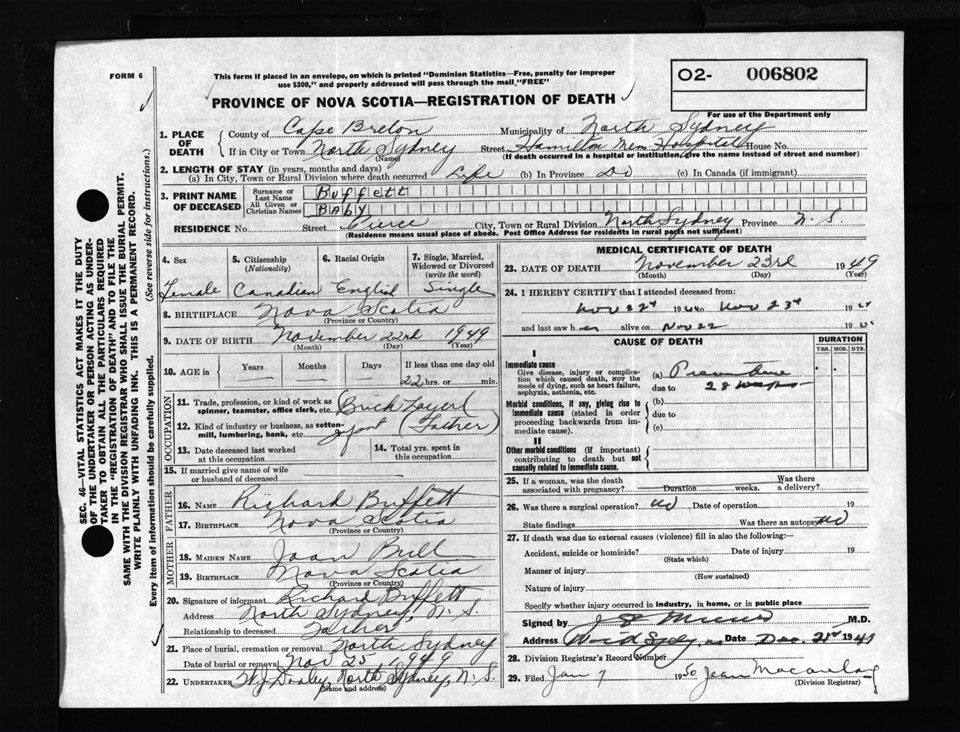 FORM 6
This form if placed in an envelope, on which is printed "Dominion Statistics—Free, penalty for improper
use $300," and properly addressed will pass through the mail "FREE"
O2- 006802
PROVINCE OF NOVA SCOTIA—REGISTRATION OF DEATH
For use of the Department only
1. PLACE OF DEATH
County of Cape Breton Municipality of North Sydney
If in City or Town North Sydney Street Hamilton Mem Hospital House No.
(Name) (If death occurred in a hospital or institution, give the name instead of street and number)
2. LENGTH OF STAY (in years, months and days)
(a) In City, Town or Rural Division where death occurred Life (b) In Province Do (c) In Canada (if immigrant)
3. PRINT NAME OF DECEASED
Surname or Last Name Buffett
All Given or Christian Names BABy
RESIDENCE No. Street Pierce City, Town or Rural Division North Sydney Province N. S.
(Residence means usual place of abode. Post Office Address for residents in rural parts not sufficient)
4. Sex 5. Citizenship (Nationality) 6. Racial Origin 7. Single, Married, Widowed or Divorced (write the word)
Female Canadian English Single
8. BIRTHPLACE Nova Scotia
(Province or Country)
9. DATE OF BIRTH November 22nd 1949
(Month) (Day) (Year)
10. AGE in Years Months Days If less than one day old
22 hrs. or min.
OCCUPATION
11. Trade, profession, or kind of work as
spinner, teamster, office clerk, etc.
12. Kind of industry or business, as cotton-
mill, lumbering, bank, etc. Infant (Father)
13. Date deceased last worked
at this occupation
14. Total yrs. spent in
this occupation
15. If married give name of wife
or husband of deceased
FATHER
16. NAME Richard Buffett
17. BIRTHPLACE Nova Scotia
(Province or Country)
MOTHER
18. MAIDEN NAME Joan Bull
19. BIRTHPLACE Nova Scotia
(Province or Country)
20. Signature of informant Richard Buffett
Address North Sydney, N. S.
Relationship to deceased Father
21. Place of burial, cremation or removal North Sydney
Date of burial or removal Nov 25, 1949
22. UNDERTAKER Dooley, North Sydney, N. S.
(Name and address)
MEDICAL CERTIFICATE OF DEATH
23. DATE OF DEATH November 23rd 1949
(Month) (Day) (Year)
24. I HEREBY CERTIFY that I attended deceased from:
Nov 22d 19 to Nov 23rd 19
and last saw h er alive on Nov 22 19
CAUSE OF DEATH DURATION
YRS. MOS. DYS.
I
Immediate cause
Give disease, injury or complica-
tion which caused death, NOT the
mode of dying, such as heart failure,
asphyxia, asthenia, etc.
(a) Premature
due to 28 weeks
Morbid conditions, if any, giving rise to
immediate cause (stated in order
proceeding backwards from im-
mediate cause).
(b)
due to
(c)
II
Other morbid conditions (if important)
contributing to death but not
causally related to immediate cause.
25. If a woman, was the death
associated with pregnancy? Duration weeks. Was there
a delivery?
26. Was there a surgical operation? No Date of operation 19
State findings Was there an autopsy No
27. If death was due to external causes (violence) fill in also the following:
Accident, suicide or homicide? Date of injury 19
(State which)
Manner of injury
(How sustained)
Nature of injury
Specify whether injury occurred in industry, in home, or in public place
Signed by M.D.
Address Date Dec. 21st 1949
28. Division Registrar's Record Number
29. Filed Jan 7 1950 Jean
(Division Registrar)
SEC. 46—VITAL STATISTICS ACT MAKES IT THE DUTY
OF THE UNDERTAKER OR PERSON ACTING AS UNDER-
TAKER TO OBTAIN ALL THE PARTICULARS REQUIRED
IN THE "REGISTRATION OF DEATH" AND TO FILE THE
SAME WITH THE DIVISION REGISTRAR WHO SHALL ISSUE THE BURIAL PERMIT.
WRITE PLAINLY WITH UNFADING INK. THIS IS A PERMANENT RECORD.
Every item of information should be carefully supplied. (See reverse side for instructions.)